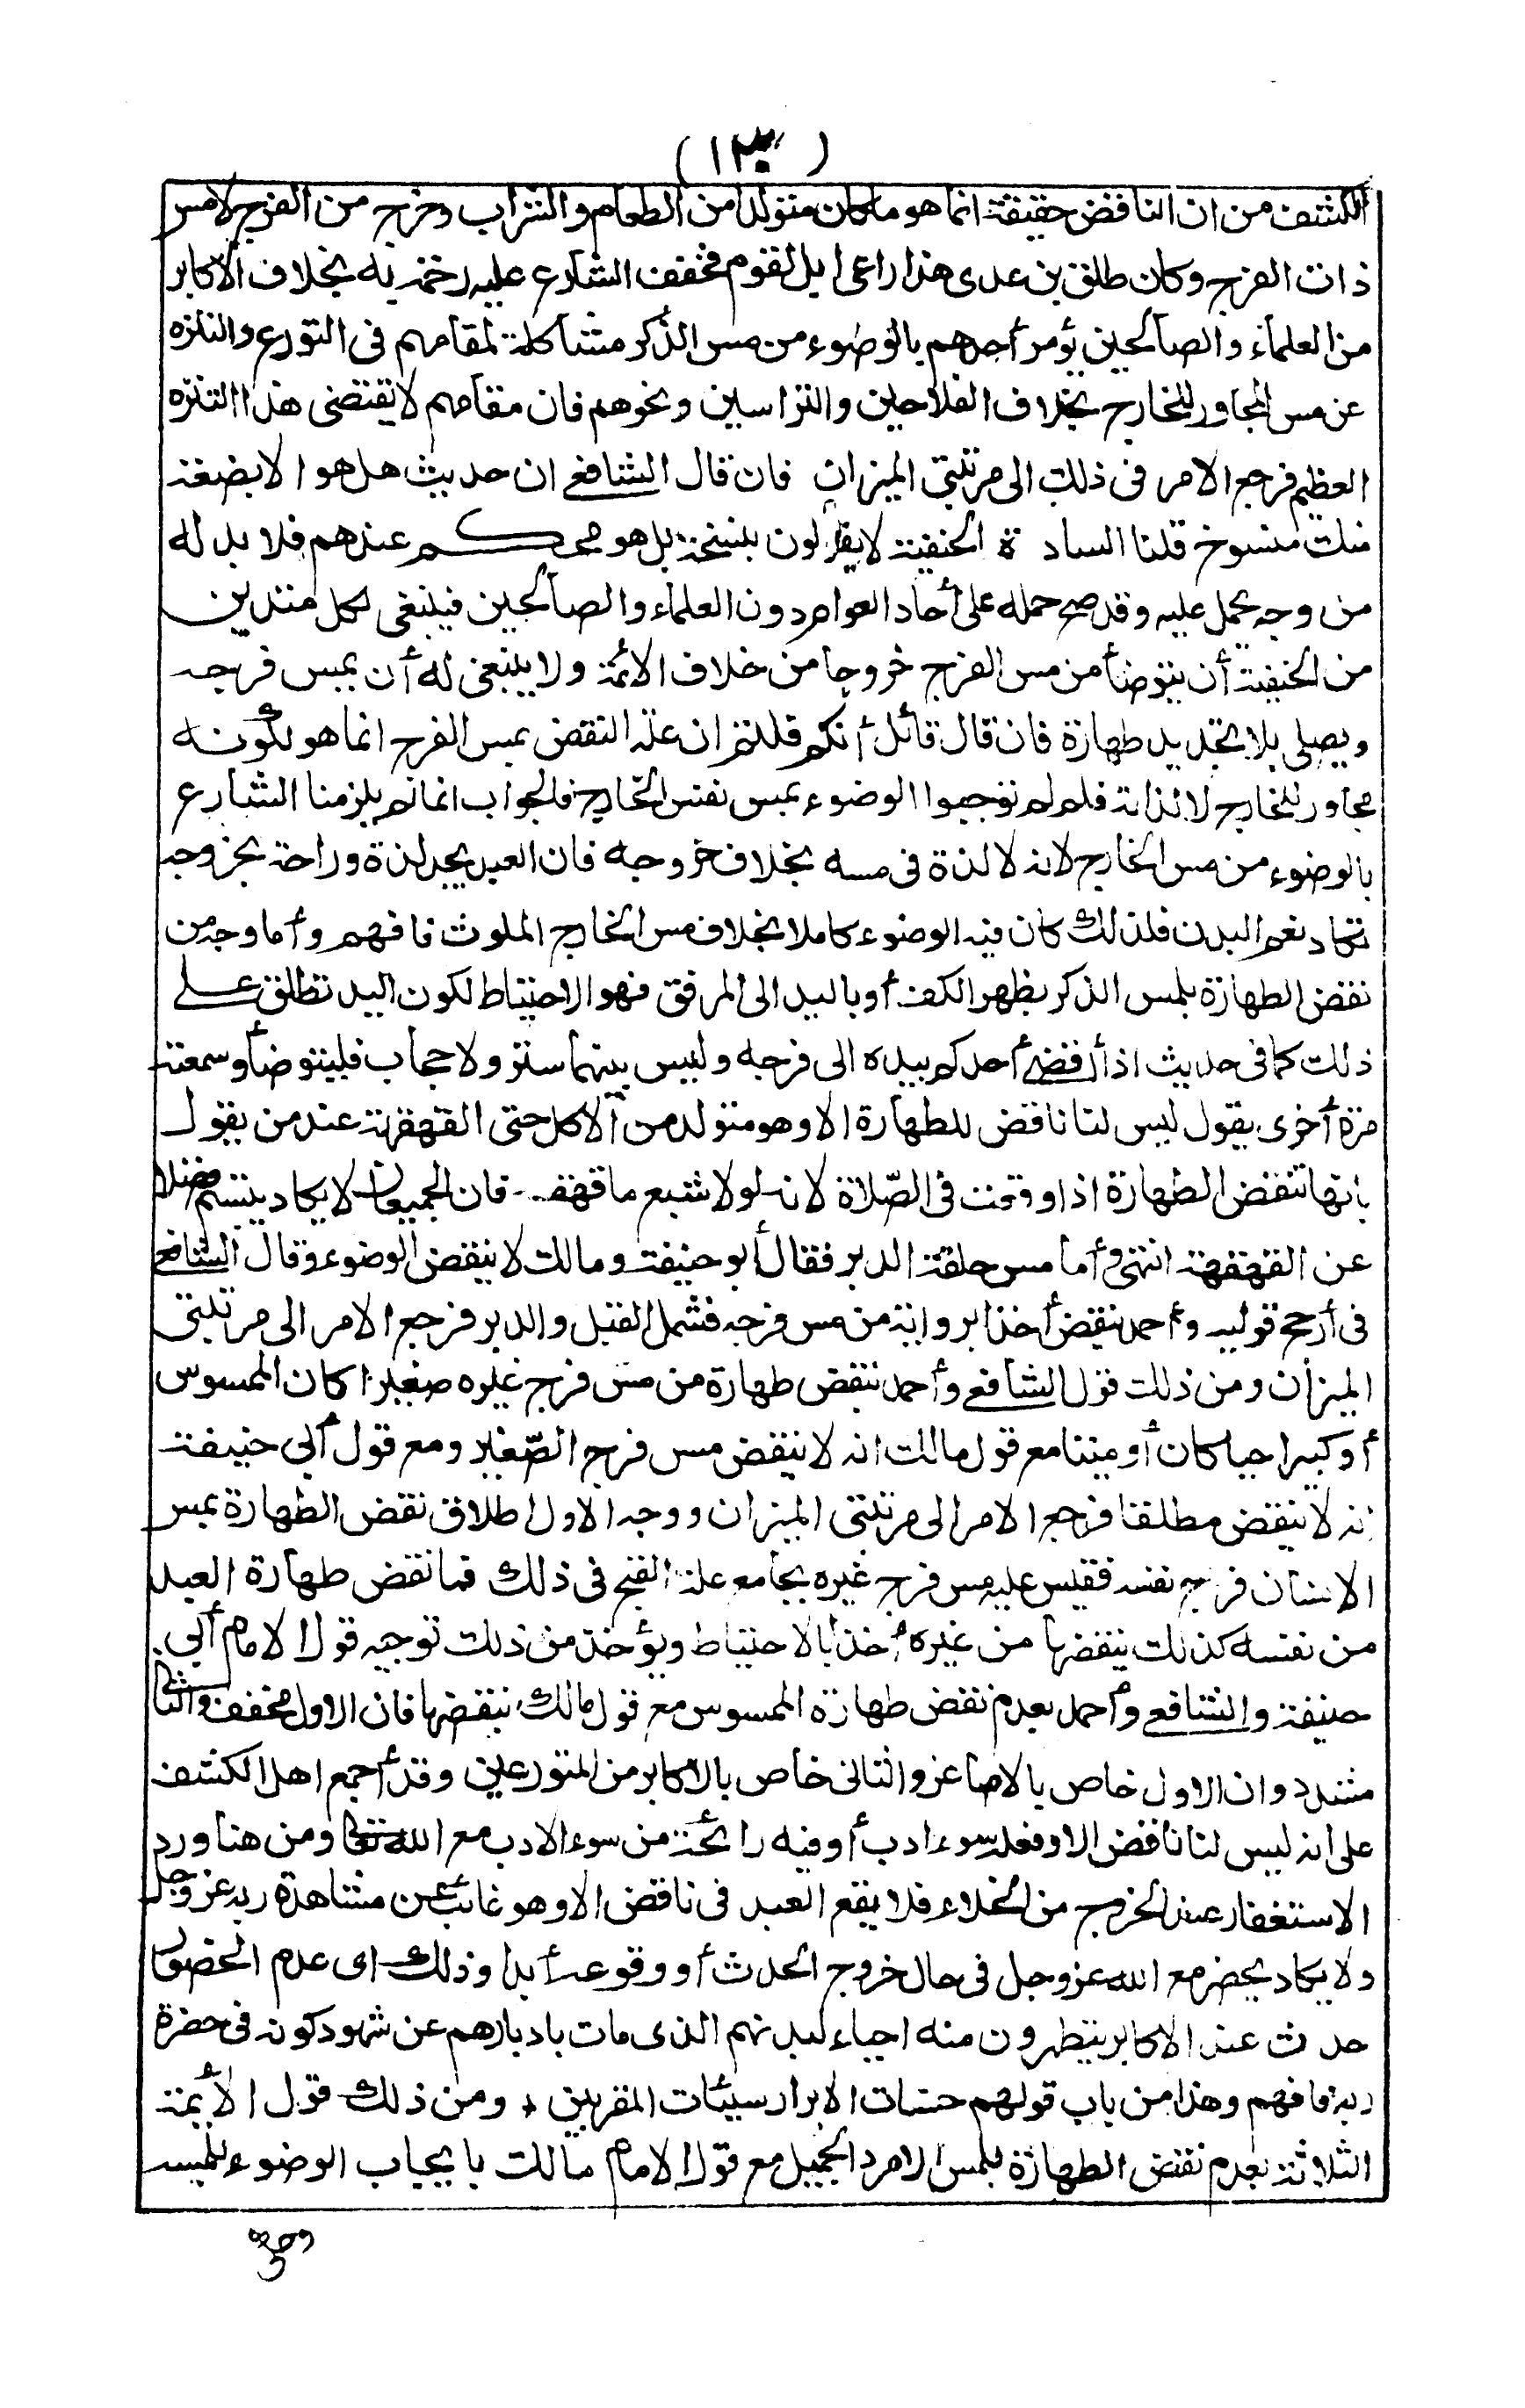 (١٣٠)
الكشف من ان الناقض حقيقة انما هو ما كان متولدا من الطعام والشراب وخرج من الفرج لا مس
ذات الفرج وكان طلق بن عدى هذا راعى ابل لقوم فخفف الشارع عليه رخصة له بخلاف الأكابر
من العلماء والصالحين يؤمر أحدهم بالوضوء من مس الذكر مشاكلة لمقامهم فى التورع والتنزه
عن مس المجاور للخارج بخلاف الفلاحين والتراسين ونحوهم فان مقامهم لا يقتضى هذا التنزه
العظيم فرجع الامر فى ذلك الى مرتبتى الميزان فان قال الشافعى ان حديث هل هو الا بضعة
منك منسوخ قلنا السادة الحنفية لا يقولون بنسخه بل هو محكم عندهم فلا بد له
من وجه يحمل عليه وقد صح حمله على أحاد العوام دون العلماء والصالحين فينبغى لكل متدين
من الحنفية أن يتوضأ من مس الفرج خروجا من خلاف الائمة ولا ينبغى له أن يمس فرجه
ويصلى بلا تجديد طهارة فان قال قائل أنكم قلتم ان علة النقض بمس الفرج انما هو لكونه
مجاور للخارج لا لذاته فلم لم توجبوا الوضوء بمس نفس الخارج فالجواب انما لم يلزمنا الشارع
بالوضوء من مس الخارج لانه لا لذة فى مسه بخلاف خروجه فان العبد يجد لذة وراحة بخروجه
تكاد تعم البدن فلذلك كان فيه الوضوء كاملا بخلاف مس الخارج الملوث فافهم وأما وجه من
نقض الطهارة بلمس الذكر بظهر الكف أو باليد الى المرفق فهو الاحتياط لكون اليد تطلق على
ذلك كما فى حديث اذا أفضى أحدكم بيده الى فرجه وليس بينهما ستر ولا حجاب فليتوضأ وسمعته
مرة أخرى يقول ليس لنا ناقض للطهارة الا وهو متولد من الاكل حتى القهقهة عند من يقول
بانها تنقض الطهارة اذا وقعت فى الصّلاة لانه لولا شبع ما قهقه فان الجميعان لا يكاد يتبسم فضلا
عن القهقهة انتهى وأما مس حلقة الدبر فقال أبو حنيفة ومالك لا ينقض الوضوء وقال الشافعى
فى أرجح قوليه وأحمد ينقض أخذا برواية من مس فرجه فشمل القبل والدبر فرجع الامر الى مرتبتى
الميزان ومن ذلك قول الشافعى وأحمد بنقض طهارة من مس فرج غيره صغيرا كان الممسوس
أو كبيرا حيا كان أو ميتا مع قول مالك انه لا ينقض مس فرج الصّغير ومع قول أبى حنيفة
انه لا ينقض مطلقا فرجع الامر الى مرتبتى الميزان ووجه الاول اطلاق نقض الطهارة بمس
الانسان فرج نفسه فقيس عليه مس فرج غيره بجامع علة القبح فى ذلك فما نقض طهارة العبد
من نفسه كذلك ينقضها من غيره أخذا بالاحتياط ويؤخذ من ذلك توجيه قول الامام أبى
حنيفة والشافعى وأحمد بعدم نقض طهارة الممسوس مع قول مالك بنقضها فان الاول مخفف والثانى
مشدد وان الاول خاص بالاصاغر والثانى خاص بالاكابر من المتورعين وقد أجمع اهل الكشف
على انه ليس لنا ناقض الا وفعله سوء ادب أو فيه رائحة من سوء الادب مع الله تعالى ومن هنا ورد
الاستغفار عند الخروج من الخلاء فلا يقع العبد فى ناقض الا وهو غائب عن مشاهدة ربه عز وجل
ولا يكاد يحضر مع الله عز وجل فى حال خروج الحدث أو وقوعه أبدا وذلك اى عدم الحضور
حدث عند الاكابر يتطهرون منه احياء لبدنهم الذى مات بادبارهم عن شهود كونه فى حضرة
ربه فافهم وهذا من باب قولهم حسنات الابرار سيئات المقربين ، ومن ذلك قول الأئمة
الثلاثة بعدم نقض الطهارة بلمس الامرد الجميل مع قول الامام مالك بايجاب الوضوء بلمسه
ووجه